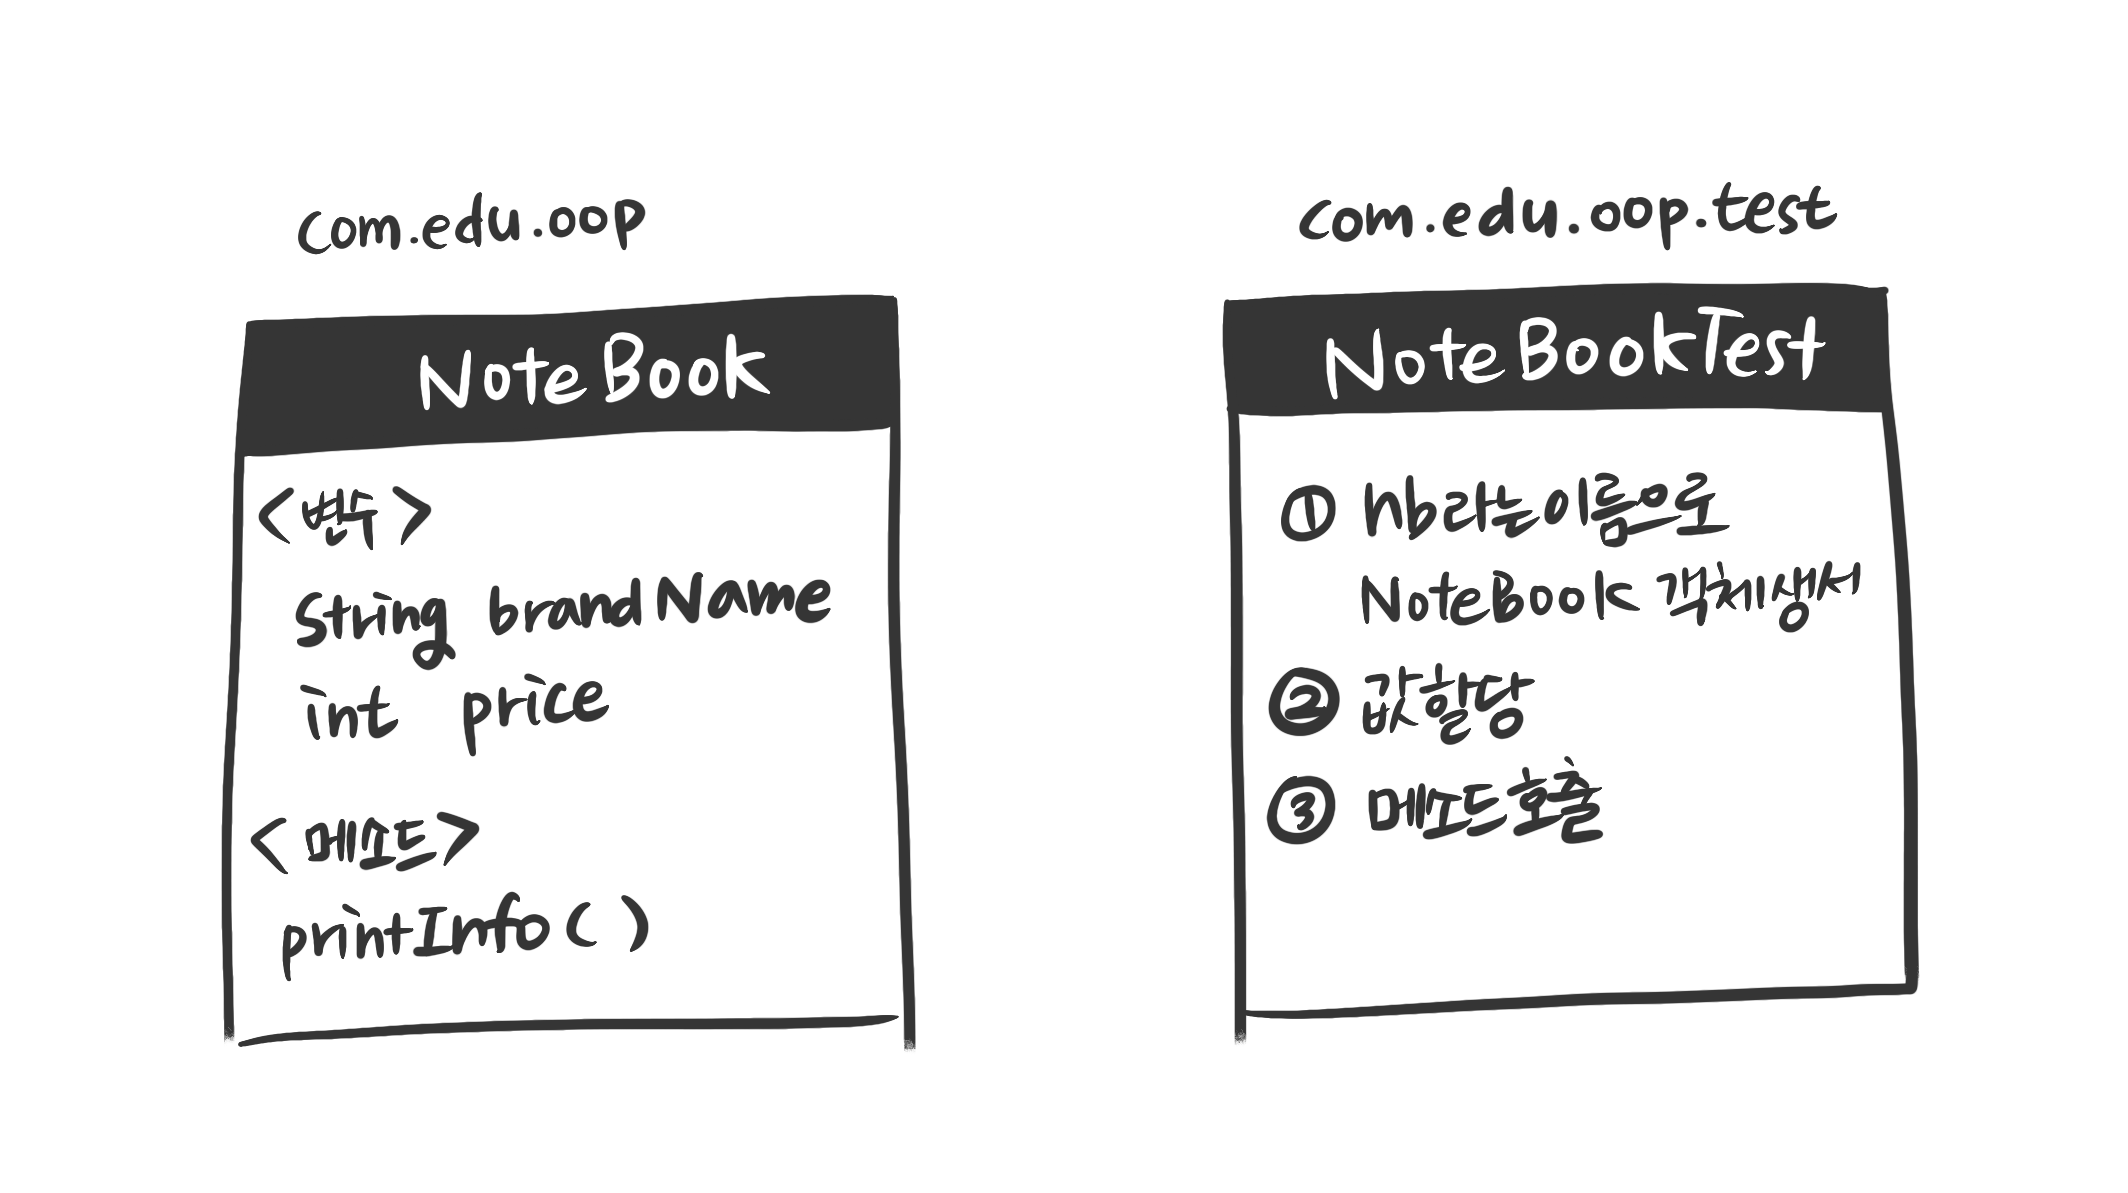 com.edu.oop
NoteBook
<변수>
String brandName
int price
<메소드>
printInfo()
com.edu.oop.test
NoteBookTest
① nb라는이름으로
NoteBook 객체생서
② 값할당
③ 메소드호출